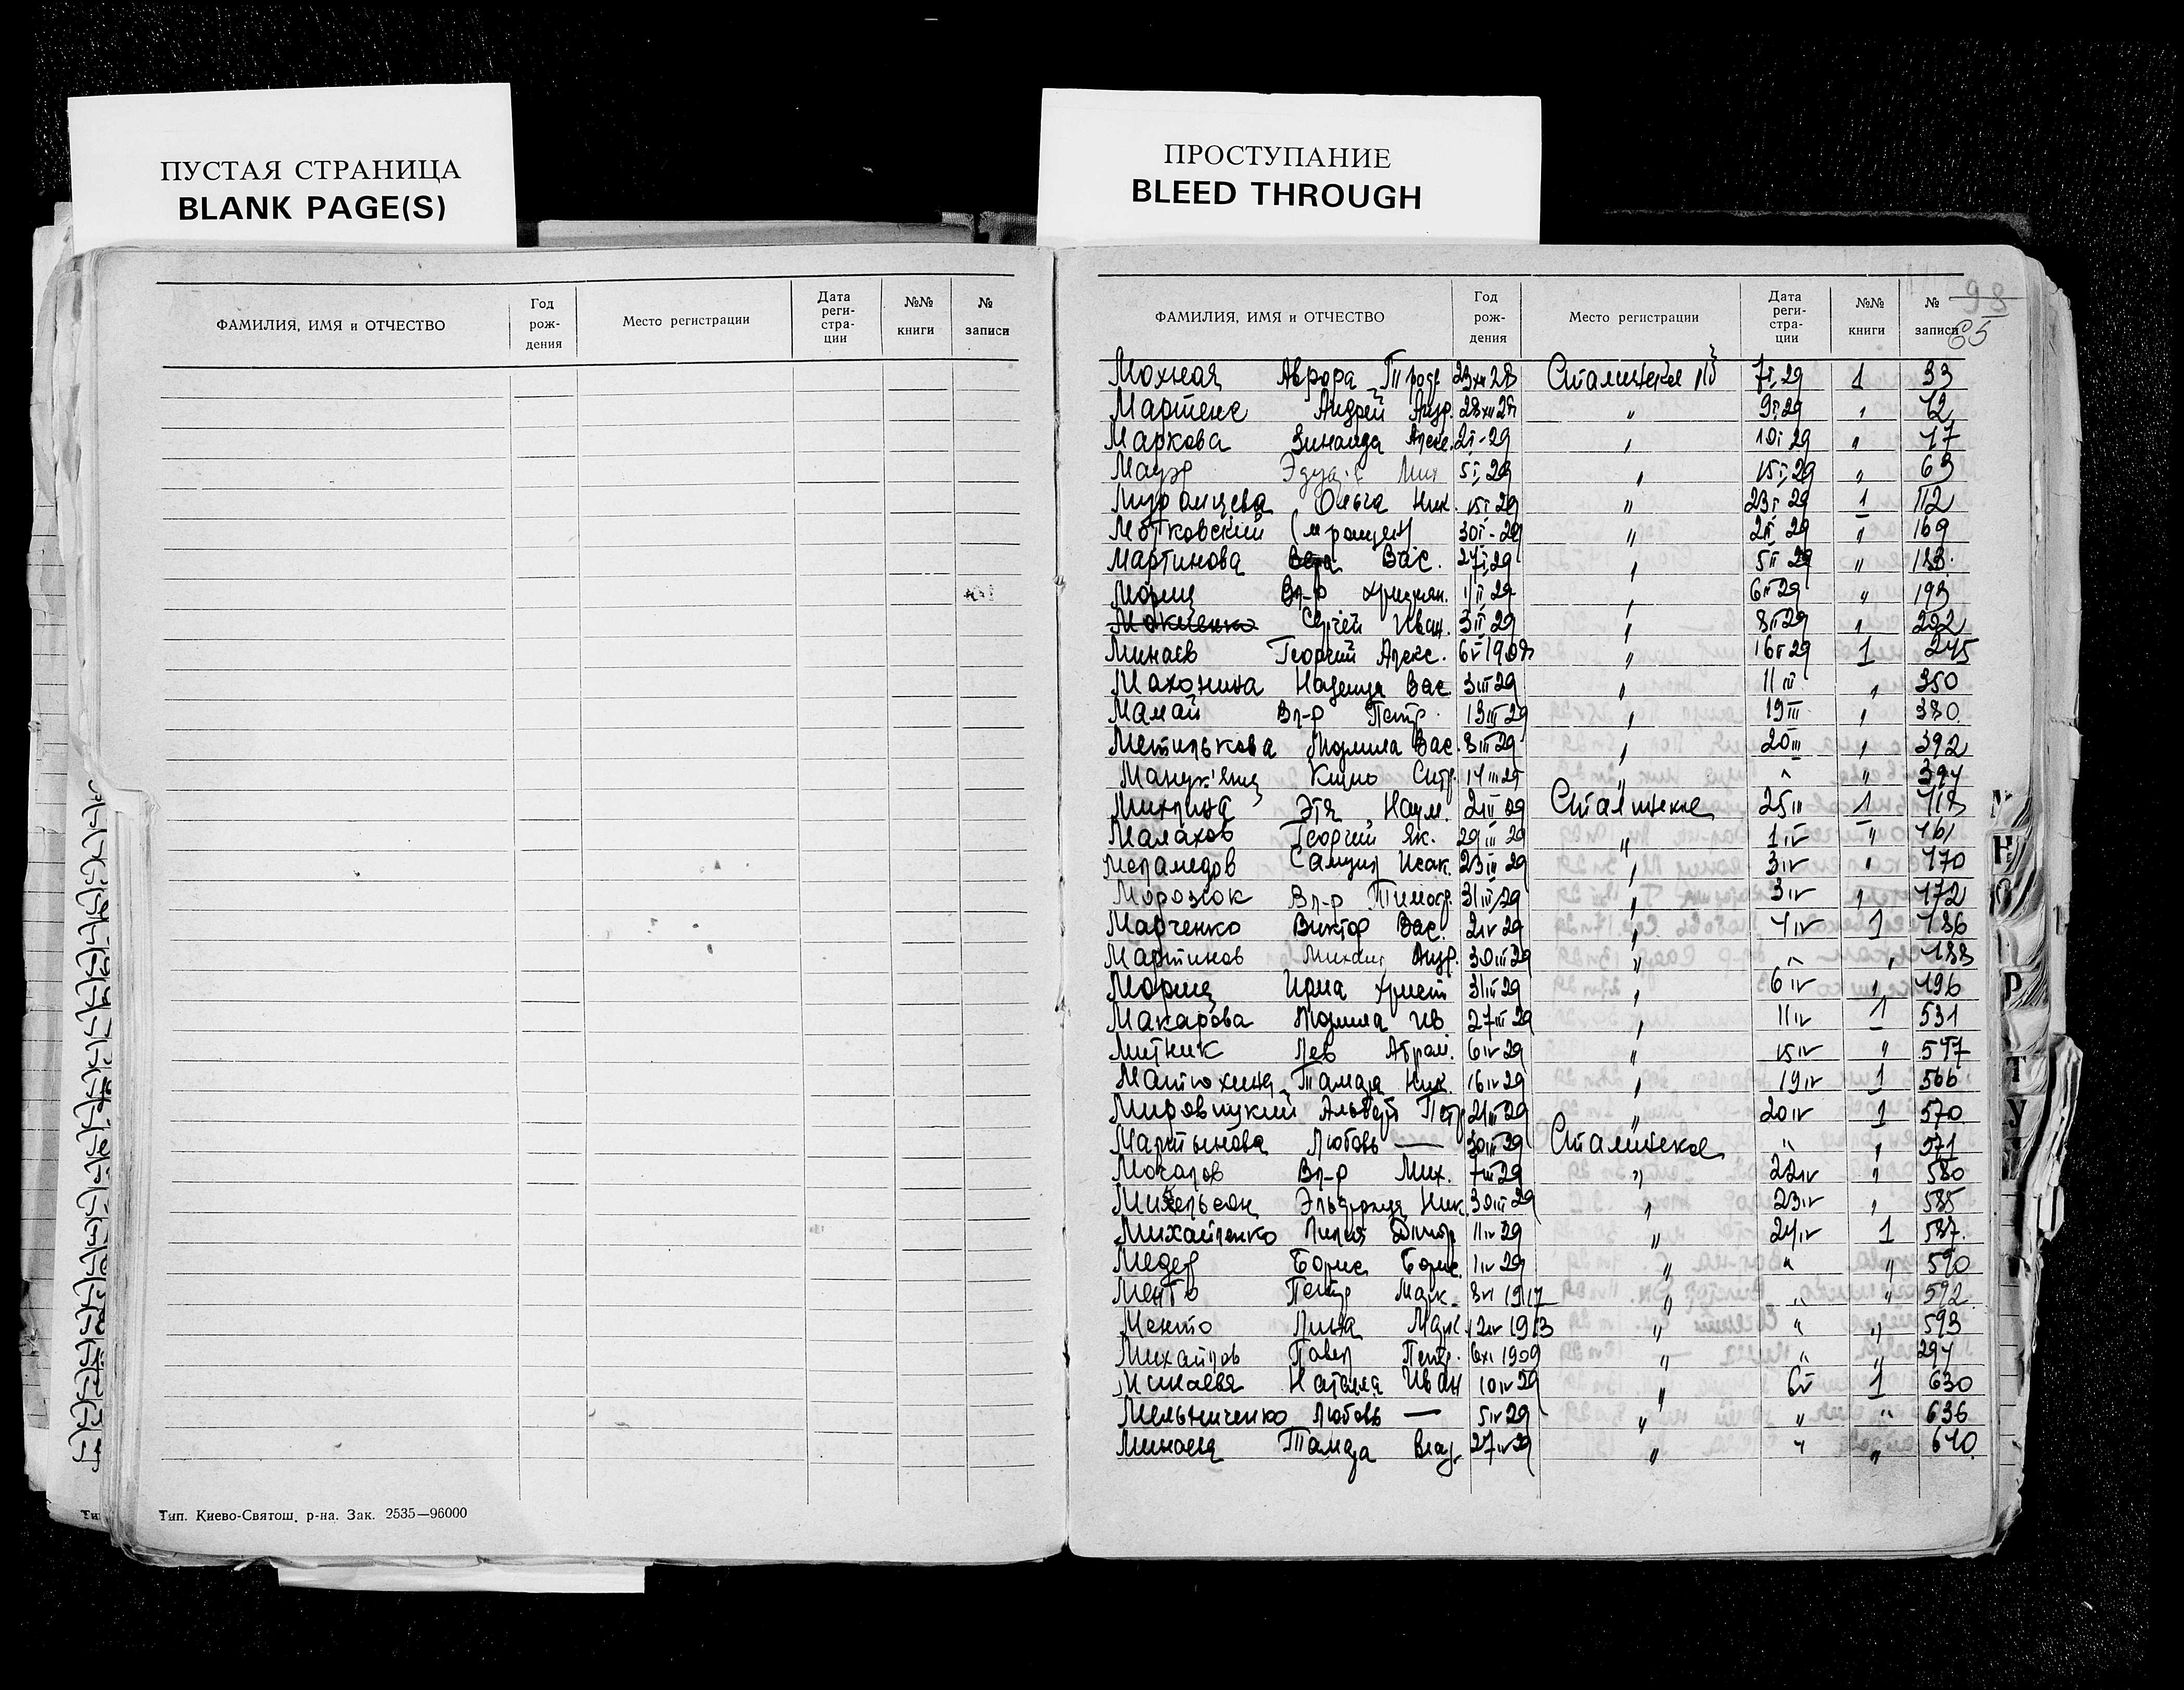 ПУСТАЯ СТРАНИЦА
BLANK PAGE(S)
ПРОСТУПАНИЕ
BLEED THROUGH
ФАМИЛИЯ, ИМЯ и ОТЧЕСТВО Год рож- дения Место регистрации Дата реги- стра- ции №№ книги № записи
Тип. Киево-Святош. р-на. Зак. 2535—96000
98
65
ФАМИЛИЯ, ИМЯ и ОТЧЕСТВО Год рож- дения Место регистрации Дата реги- стра- ции №№ книги № записи
Мохная Аврора 23 XII 28 Сталинское 7 I 29 1 33
Мартенс Андрей Андр. 28 XII 28 " 9 I 29 " 42
Маркова Зинаида Алекс. 2 I - 29 " 10 I 29 " 47
Мауэр 5 I 29 " 15 I 29 " 63
Муромцева Ольга Ник. 15 I 29 " 23 I 29 1 112
30 I - 29 " 2 II 29 " 169
Мартинова Вера Вас. 27 I 29 " 5 II 29 " 188
Мориц Вл-р Христиан. 1 II 29 " 6 II 29 " 193
Сергей Иван. 3 II 29 " 8 II 29 " 202
Минаев Георгий Алекс. 6 V 1908 " 16 II 29 1 245
Махонина Надежда Вас 3 III 29 " 11 III " 350
Мамай Вл-р Петр. 13 III 29 " 19 III " 380
Метилькова Людмила Вас. 8 III 29 " 20 III " 392
Кимо 14 III 29 " " " 394
Михлина Этя Наум. 2 III 29 Сталинское 25 III 1 418
Малахов Георгий Як. 29 III 29 " 1 IV " 461
Меламедов Самуил Исак. 23 III 29 " 3 IV " 470
Морозюк Вл-р Тимоф. 31 III 29 " 3 IV " 472
Марченко Виктор Вас. 2 IV 29 " 4 IV 1 486
Мартинов Михаил Андр. 30 III 29 " " " 488
Мориц Ирма Христ 31 III 29 " 6 IV " 496
Макарова Людмила Ив 27 III 29 " 11 IV 1 531
Митник Лев Абрам. 6 IV 29 " 15 IV " 547
Матюхина Тамара Ник. 16 IV 29 " 19 IV 1 566
Мировицкий Альберт Петр 21 III 29 " 20 IV 1 570
Мартынова Любовь — 30 III 29 Сталинское " " 571
Мочалов Вл-р Мих. 7 III 29 " 22 IV " 580
Михельсон Ник. 30 III 29 " 23 IV " 585
Михайленко Лилия Дмитр 11 IV 29 " 24 IV 1 587
Медер Борис Борис. 1 IV 29 " " " 590
Менто Петр Марк. 3 VI 1917 " " " 592
Менто Лина Марк. 12 IV 1913 " " " 593
Михайлов Павел Петр. 6 XI 1909 " " " 294
Минаева Наталия Иван 10 IV 29 " 6 V 1 630
Мельниченко Любовь — 5 IV 29 " " " 636
Минаева Тамара Влад. 27 IV 29 " " " 640